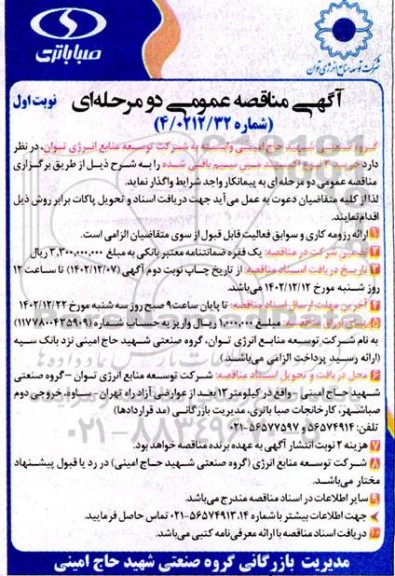 صباباتری
شرکت توسعه منابع انرژی توان
آگهی مناقصه عمومی دو مرحله‌ای
نوبت اول
(شماره ۴/۰۲۱۲/۳۲)
گروه صنعتی شهید حاج امینی وابسته به شرکت توسعه منابع انرژی توان، در نظر
دارد خرید را به شرح ذیل از طریق برگزاری
مناقصه عمومی دو مرحله‌ای به پیمانکار واجد شرایط واگذار نماید.
لذا از کلیه متقاضیان دعوت به عمل می‌آید جهت دریافت اسناد و تحویل پاکات برابر روش ذیل
اقدام نمایند.
۱ ارائه رزومه کاری و سوابق فعالیت قابل قبول از سوی متقاضیان الزامی است.
۲ تضمین شرکت در مناقصه: یک فقره ضمانتنامه معتبر بانکی به مبلغ ۳,۳۰۰,۰۰۰,۰۰۰ ریال
۳ تاریخ دریافت اسناد مناقصه: از تاریخ چاپ نوبت دوم آگهی (۱۴۰۲/۱۲/۰۷) تا ساعت ۱۲
روز شنبه مورخ ۱۴۰۲/۱۲/۱۲ می‌باشد.
۴ آخرین مهلت ارسال اسناد مناقصه: تا پایان ساعت ۹ صبح روز سه شنبه مورخ ۱۴۰۲/۱۲/۲۲
۵ مناقصه: مبلغ ۱,۰۰۰,۰۰۰ ریال واریز به حساب شماره (۱۱۷۷۸۰۰۴۳۵۹۰۹)
به نام شرکت توسعه منابع انرژی توان، گروه صنعتی شهید حاج امینی نزد بانک سپه
(ارائه رسید پرداخت الزامی می‌باشد.)
۶ محل دریافت و تحویل اسناد مناقصه: شرکت توسعه منابع انرژی توان - گروه صنعتی
شهید حاج امینی - واقع در کیلومتر ۱۳ بعد از عوارضی آزاد راه تهران - ساوه، خروجی دوم
صباشهر، کارخانجات صبا باتری، مدیریت بازرگانی (مد قراردادها)
تلفن: ۵۶۵۷۴۹۱۴ و ۵۶۵۷۷۵۹۷-۰۲۱
۷ هزینه ۲ نوبت انتشار آگهی به عهده برنده مناقصه خواهد بود.
۸ شرکت توسعه منابع انرژی (گروه صنعتی شهید حاج امینی) در رد یا قبول پیشنهاد
مختار می‌باشد.
۹ سایر اطلاعات در اسناد مناقصه مندرج می‌باشد.
جهت اطلاعات بیشتر با شماره ۵۶۵۷۴۹۱۳،۱۴-۰۲۱ تماس حاصل فرمایید.
۱۰ دریافت اسناد مناقصه با ارائه معرفی نامه کتبی می‌باشد.
مدیریت بازرگانی گروه صنعتی شهید حاج امینی